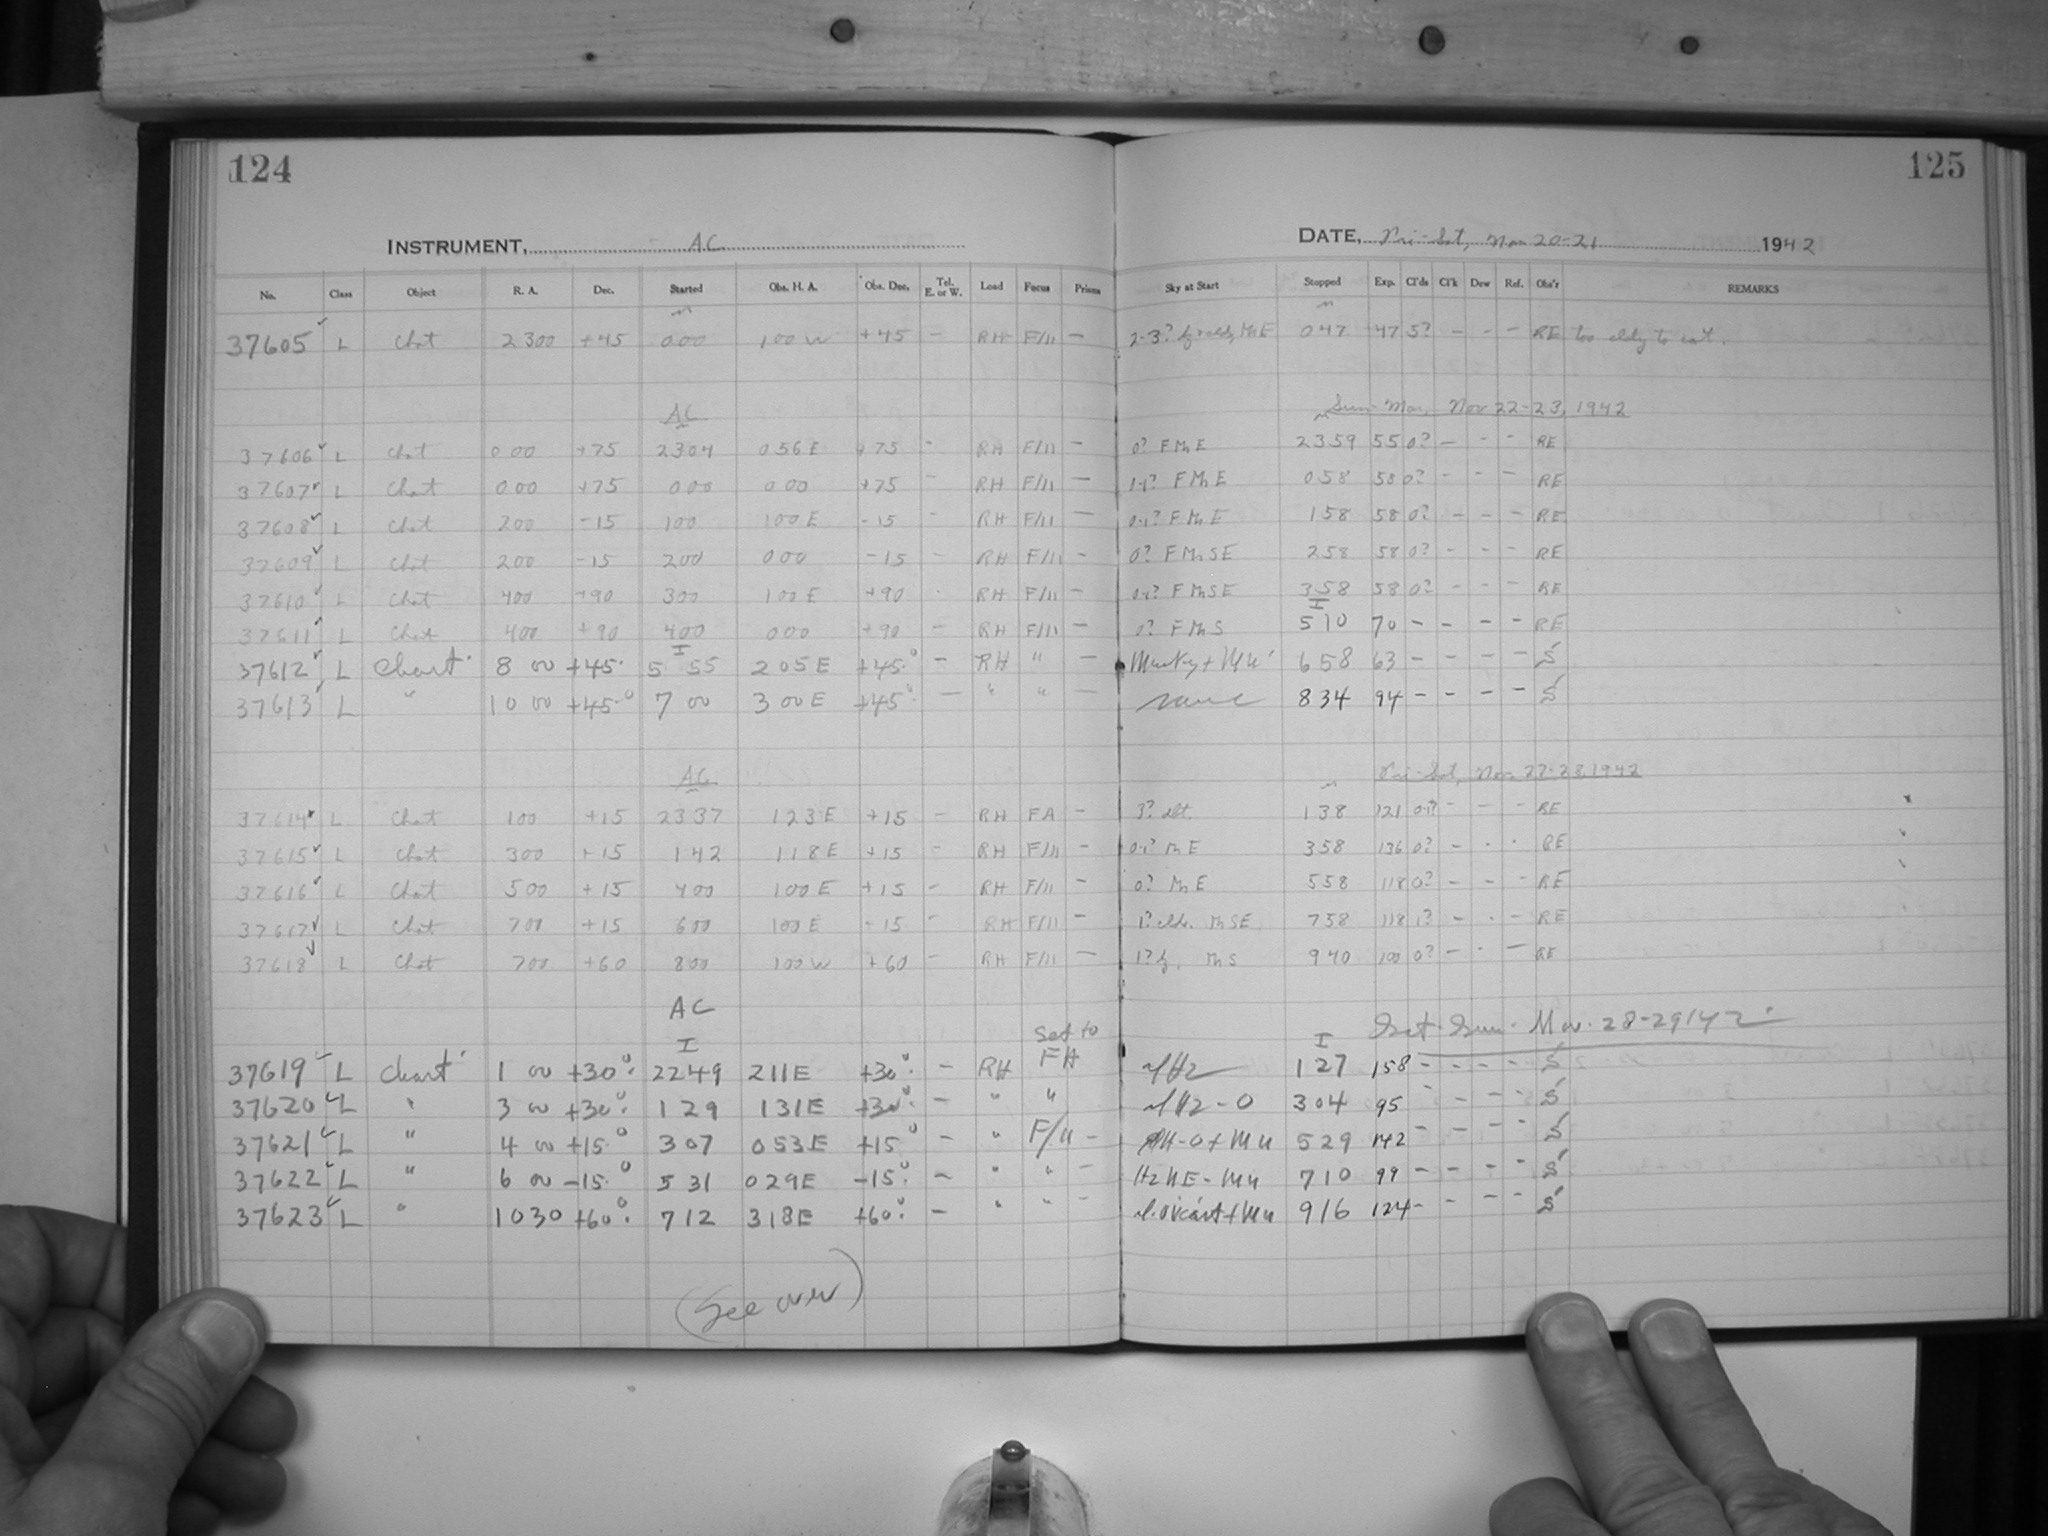 124 125
INSTRUMENT, AC DATE, Fri-Sat, Nov 20-21 1942
No. Class Object R. A. Dec. Started Obs. H. A. Obs. Dec. Tel. E. or W. Load Focus Prisms Sky at Start Stopped Exp. Cl'ds Cl'k Dew Ref. Obs'r REMARKS
37605 L Chat 2300 +45 000 100 W +45 - RH F/11 - 2-3? 047 47 5? - - - RE too cldy to cont.
AC Sun-Mon, Nov 22-23, 1942
37606 L Chat 000 +75 2304 056 E +75 - RH F/11 - 0? F Mn E 2359 55 0? - - - RE
37607 L Chat 000 +75 000 000 +75 - RH F/11 - F Mn E 058 58 0? - - - RE
37608 L Chat 200 -15 100 100 E -15 - RH F/11 - 0-1? F Mn E 158 58 0? - - - RE
37609 L Chat 200 -15 200 000 -15 - RH F/11 - 0? F Mn SE 258 58 0? - - - RE
37610 L Chat 400 +90 300 100 E +90 - RH F/11 - 0-1? F Mn SE 358 58 0? - - - RE
37611 L Chat 400 +90 400 000 +90 - RH F/11 - 0? F Mn S I 510 70 - - - - RE
37612 L Chart 8 00 +45° I 5 55 2 05 E +45° - RH " - Murky + Mn 658 63 - - - - S
37613 L " 10 00 +45° 7 00 3 00 E +45° - " " - same 834 94 - - - - S
AC Fri-Sat, Nov 27-28, 1942
37614 L Chat 100 +15 2337 123 E +15 - RH FA - 3? 138 121 0-1? - - - RE
37615 L Chat 300 +15 142 118 E +15 - RH F/11 - 0-1? Mn E 358 136 0? - - - RE
37616 L Chat 500 +15 400 100 E +15 - RH F/11 - 0? Mn E 558 118 0? - - - RE
37617 L Chat 700 +15 600 100 E +15 - RH F/11 - 1? Mn SE 758 118 1? - - - RE
37618 L Chat 700 +60 800 100 W +60 - RH F/11 - 1? Mn S 940 100 0? - - - RE
AC Sat-Sun- Nov. 28-29/42
I Set to I
37619 L Chart 1 00 +30° 2249 211 E +30° - RH FA 127 158 - - - - S
37620 L " 3 00 +30° 1 29 131 E +30° - " " 304 95 - - - S
37621 L " 4 00 +15° 3 07 053 E +15° - " F/11 - 529 142 - - - - S
37622 L " 6 00 -15° 5 31 029 E -15° - " " - Hz NE - Mn 710 99 - - - - S
37623 L " 1030 +60° 712 318 E +60° - " " - 916 124 - - - - S
(See over)